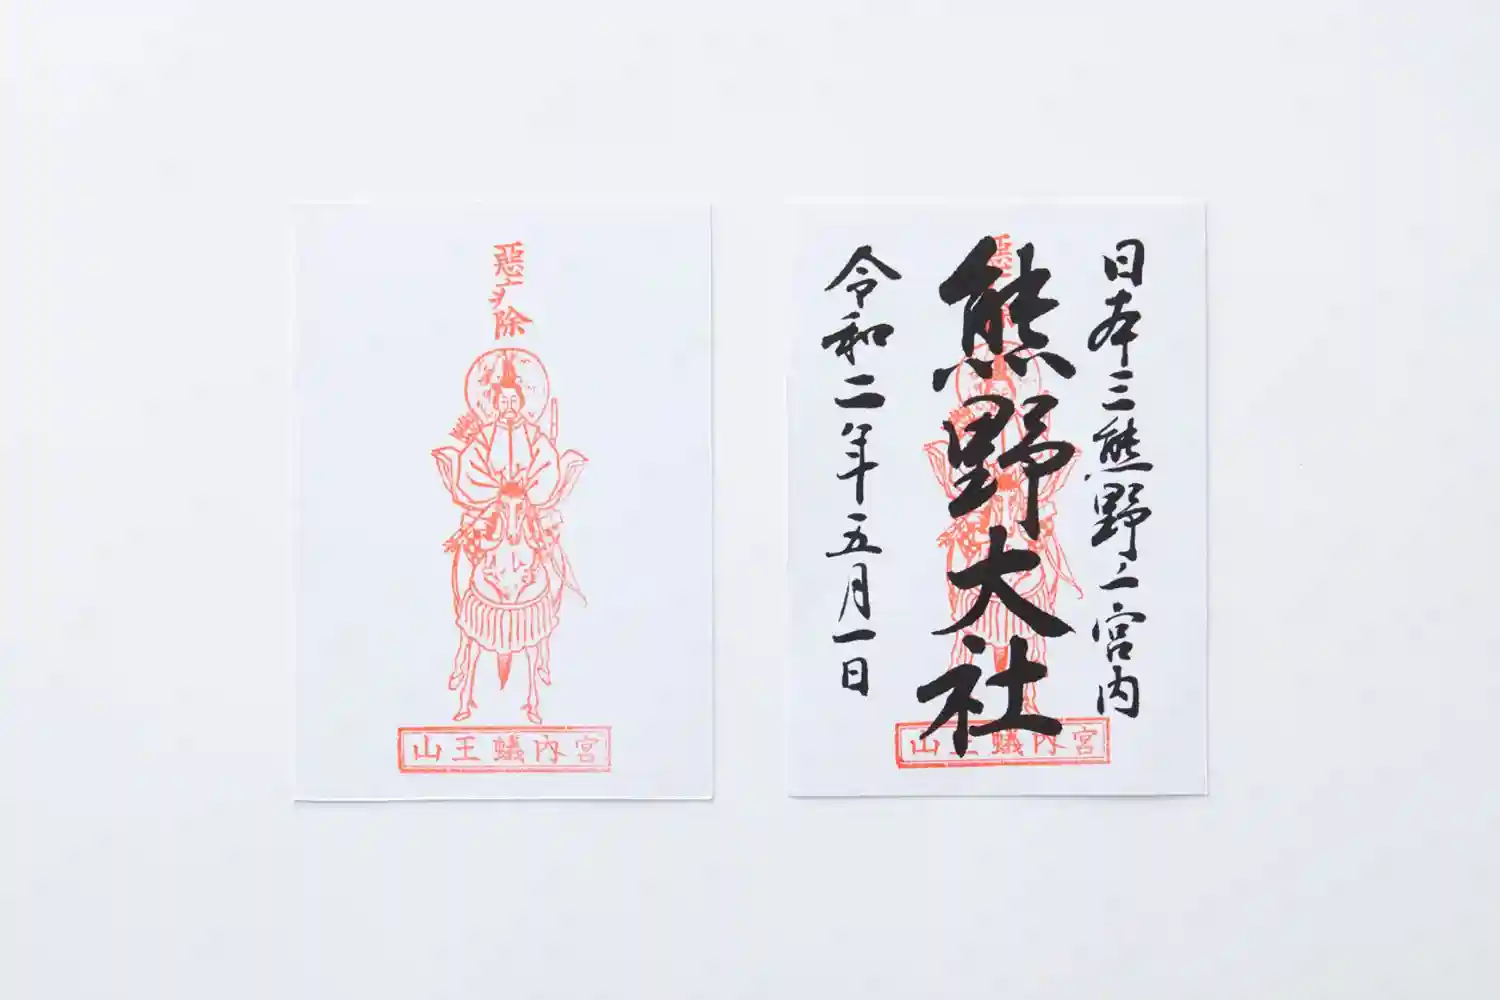 惡
除
山王蟻内宮
日本三熊野之宮内
熊野大社
令和二年五月一日
山王蟻内宮